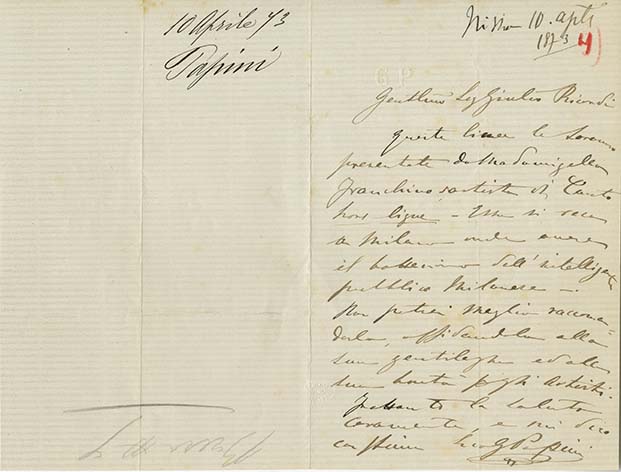 10 Aprile 73
Papini
Nissa 10. aple
1873
4)
Gentilmo Sig Giulio Ricordi
queste linee le saranno
presentate da Madamigella
Franchino artista di Canto
hors ligne - Essa si reca
a Milano onde avere
il battesimo dell'intelligente
pubblico Milanese -.
Non potrei meglio raccoman
darla, affidandola alla
sua gentilezza ed alla
sua bontà pegli Artisti.
la saluto
caramente, e mi dico
suo G Papini